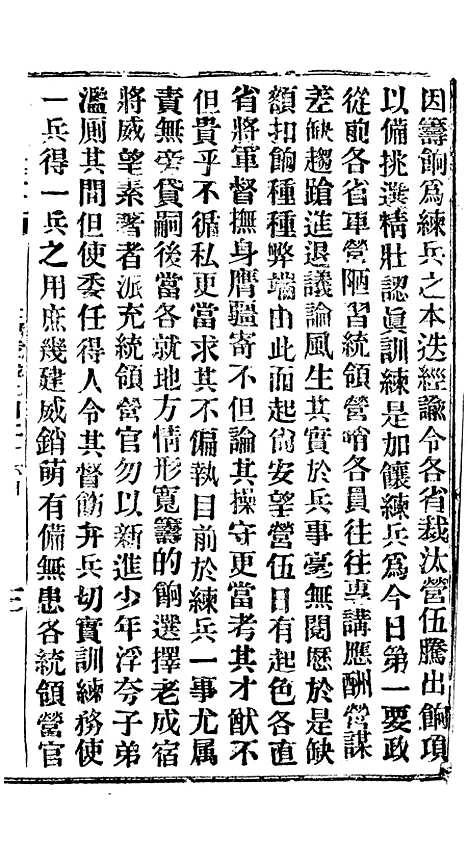 因籌餉爲練兵之本迭經諭令各省裁汰營伍騰出餉項
以備挑選精壯認眞訓練是加饟練兵爲今日第一要政
從前各省軍營陋習統領營哨各員往往專講應酬營謀
差缺趨蹌進退議論風生其實於兵事毫無閱歷於是缺
額扣餉種種弊端由此而起尙安望營伍日有起色各直
省將軍督撫身膺疆寄不但論其操守更當考其才猷不
但貴乎不循私更當求其不偏執目前於練兵一事尤屬
責無旁貸嗣後當各就地方情形寬籌的餉選擇老成宿
將威望素著者派充統領營官勿以新進少年浮夸子弟
濫厠其間但使委任得人令其督飭弁兵切實訓練務使
一兵得一兵之用庶幾建威銷萌有備無患各統領營官